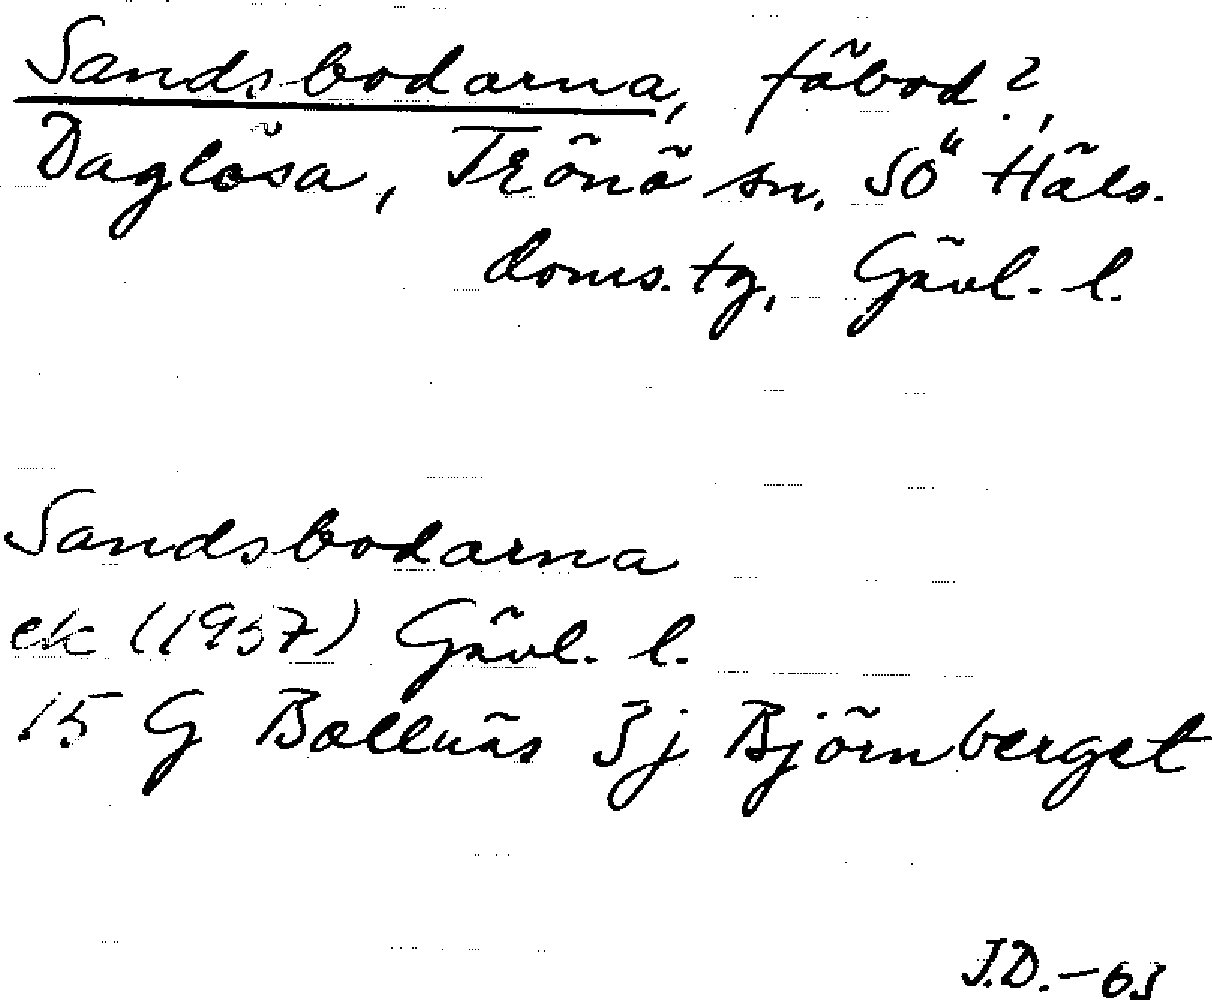 Sandsbodarna, fäbod?,
Daglösa, Trönö sn. SÖ Häls.
doms. tg, Gävl. l.
Sandsbodarna
ek (1957) Gävl. l.
15 G Bollnäs 3j Björnberget
J.D.-63